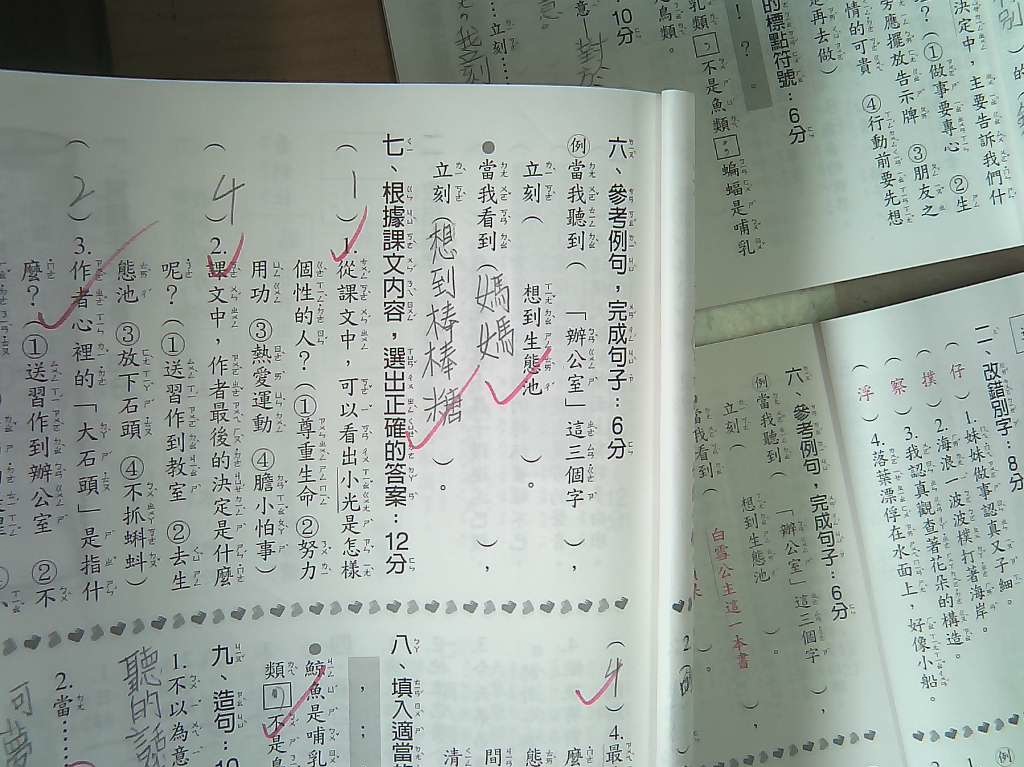 六、參考例句，完成句子：6分
例 當我聽到（ 「辦公室」這三個字 ），
立刻（ 想到生態池 ）。
●當我看到（媽媽 ），
立刻（想到棒棒糖 ）。
七、根據課文內容，選出正確的答案：12分
（1）1.從課文中，可以看出小光是怎樣
個性的人？①尊重生命 ②努力
用功 ③熱愛運動 ④膽小怕事
（4）2.課文中，作者最後的決定是什麼
呢？①送習作到教室 ②去生
態池 ③放下石頭 ④不抓蝌蚪
（2）3.作者心裡的「大石頭」是指什
麼？①送習作到辦公室 ②不
（4）4.最
麼
態
間
清
八、填入適當的
， ：
●鯨魚是哺乳
類，不是
九、造句：10
1.不以為意
聽的話
2.當……
可
10分
意—對於
……立刻……
我立刻
的標點符號：6分
！ ？
乳類，不是魚類，蝙蝠是哺乳
鳥類。
決定中，主要告訴我們什
？①做事要專心 ②生
旁應擺放告示牌 ③朋友之
情的可貴 ④行動前要先想
再去做）
二、改錯別字：8分
（仔）1.妹妹做事認真又子細。
（撲）2.海浪一波波樸打著海岸。
（察）3.我認真觀查著花朵的構造。
（浮）4.落葉漂俘在水面上，好像小船。
六、參考例句，完成句子：6分
例 當我聽到（ 「辦公室」這三個字 ），
立刻（ 想到生態池 ）。
當我看到（ 白雪公主這一本書